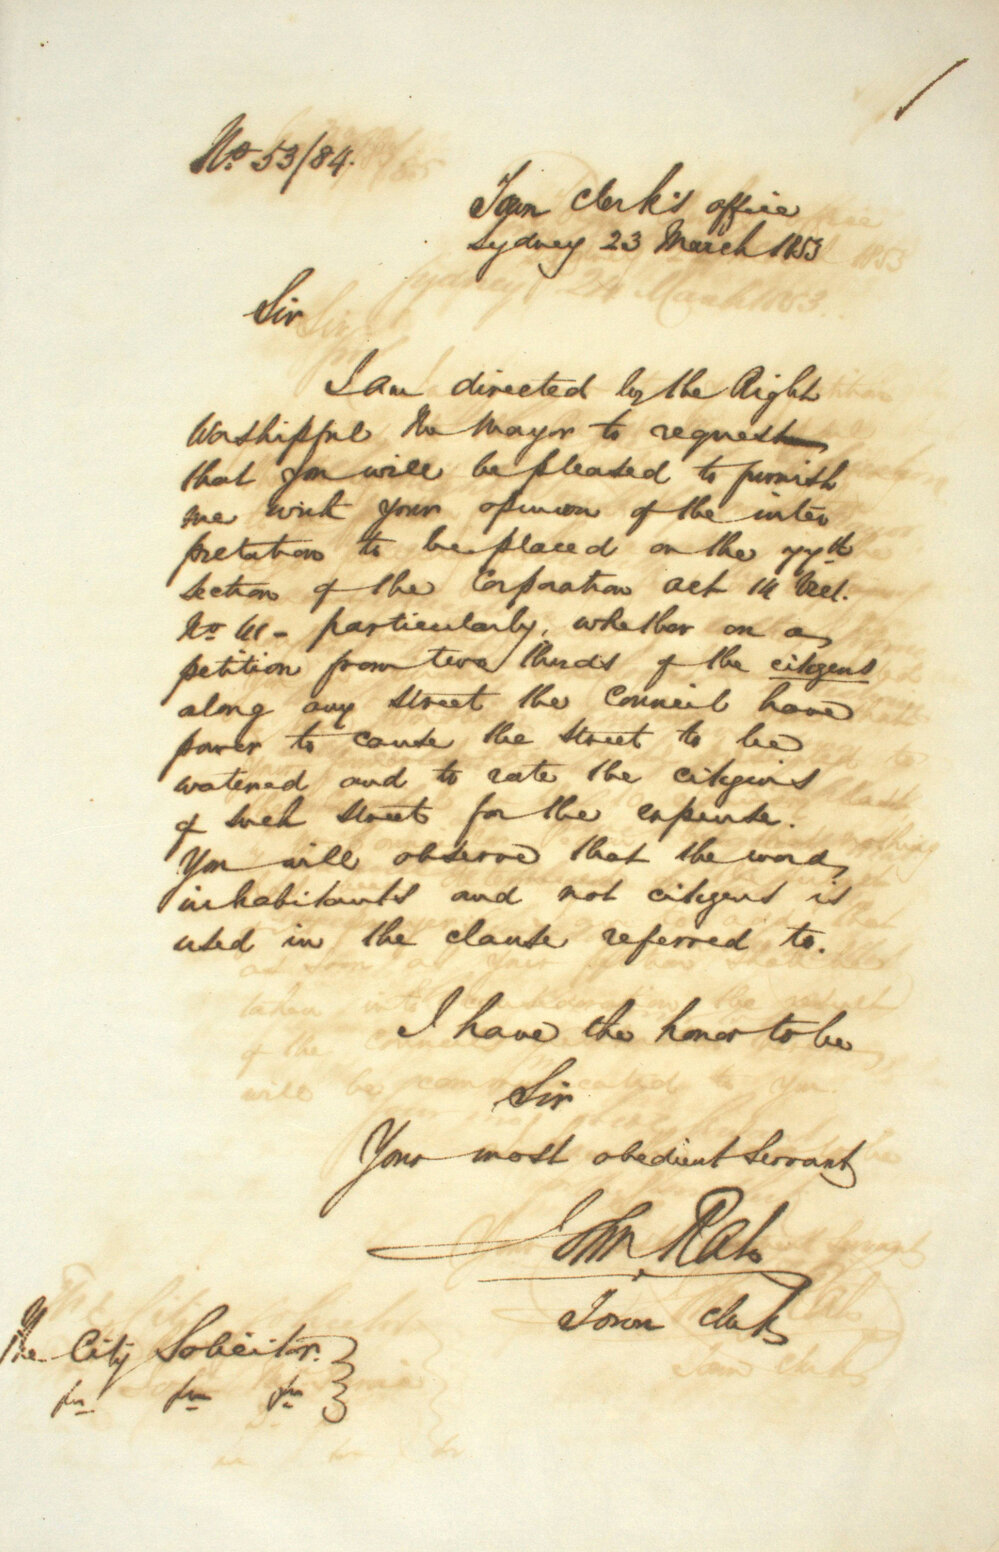 No. 53/84.
Town Clerk's office
Sydney 23 March 1853
Sir
I am directed by the Right
Worshipful the Mayor to request
that you will be pleased to furnish
me with your opinion of the inter
pretation to be placed on the 77th
section of the Corporation act 14 Vict.
No 41 - particularly, whether on a
petition from two thirds of the citizens
along any street the Council have
power to cause the street to be
watered and to rate the citizens
of such street for the expense.
You will observe that the word
inhabitants and not citizens is
used in the clause referred to.
I have the honor to be
Sir
Your most obedient Servant
John Rae
Town Clerk
The City Solicitor.